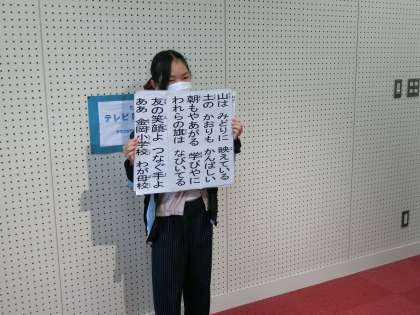 山は みどりに 映えている
土の かおりも かんばしい
朝もやあがる 学びやに
われらの旗は なびいてる
友の笑顔よ つなぐ手よ
ああ 金岡小学校 わが母校
テレビ